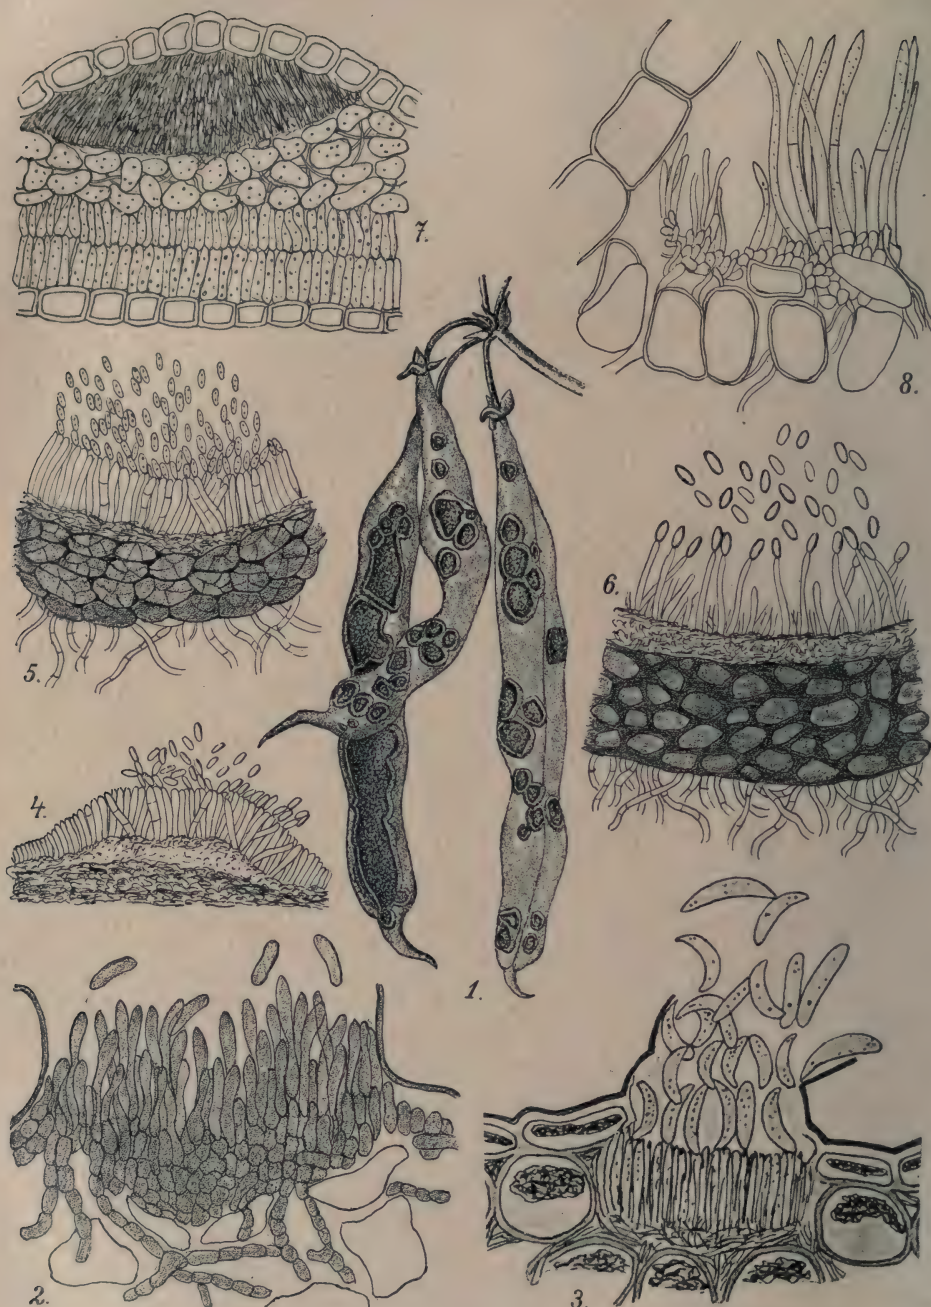 7.
8.
5.
6.
4.
1.
2.
3.